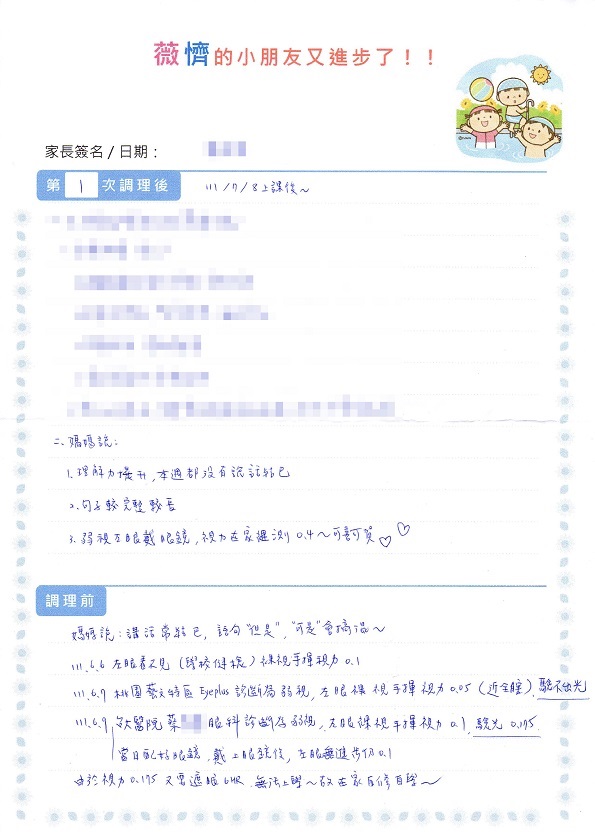 薇懠的小朋友又進步了！！
家長簽名 / 日期：
第 1 次調理後 111/7/8上課後～
二、媽媽說：
1. 理解力提升，本週都沒有說話結巴
2. 句子較完整較長
3. 弱視左眼戴眼鏡，視力在家裡測0.4～可喜可賀♡♡
調理前
媽媽說：講話常結巴，語句"但是"，"可是"會搞混～
111.6.6 左眼看不見（學校健檢）裸視手揮視力0.1
111.6.7 桃園藝文特區Eyeplus診斷為弱視，左眼裸視手揮視力0.05（近全瞎），驗不出光
111.6.9 醫院蔡 眼科診斷為弱視，左眼裸視手揮視力0.1，驗光0.175
當日配好眼鏡，戴上眼鏡後，左眼無進步仍0.1
由於視力0.175又需遮眼6HR，無法上學～故在家自修自學～